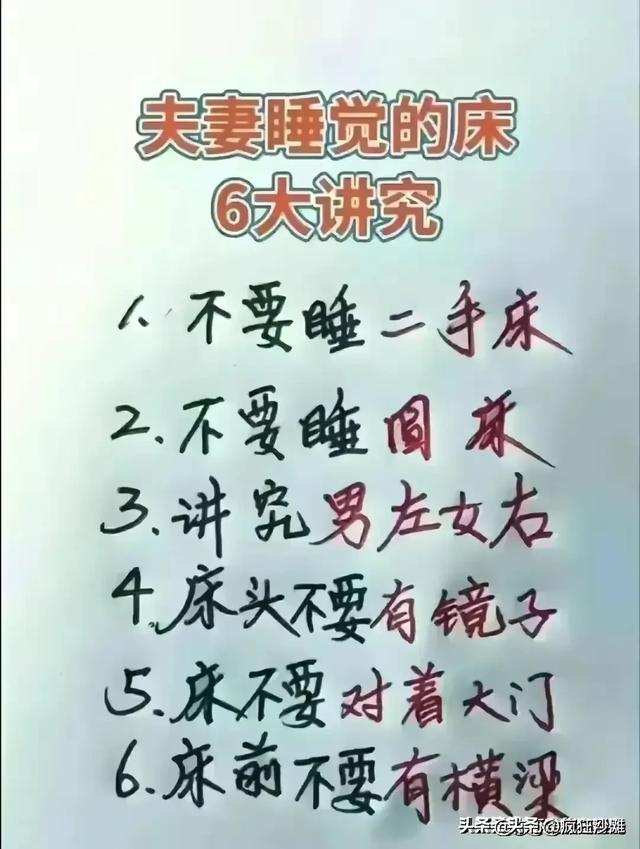 夫妻睡觉的床
6大讲究
1、不要睡二手床
2.不要睡圆床
3.讲究男左女右
4.床头不要有镜子
5.床不要对着大门
6.床前不要有横梁